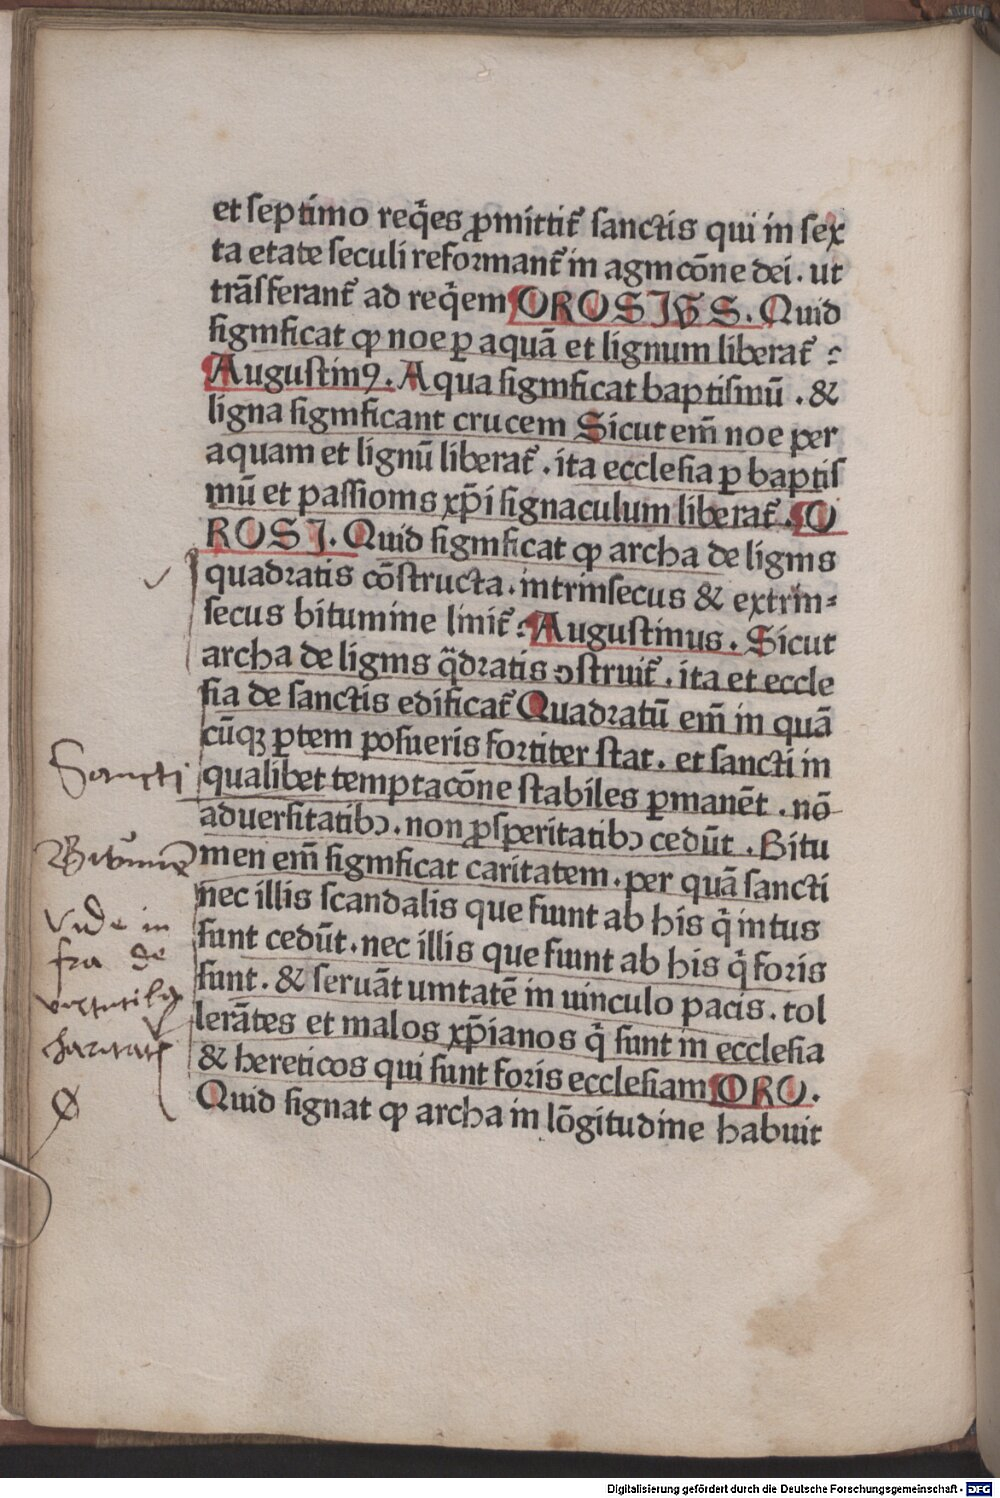 et septimo req̃es ꝓmittit̃ sanctis qui in sex
ta etate seculi reformant̃ in agnicōne dei. ut
trãsferant̃ ad req̃em OROSIUS. Quid
significat ꝙ noe ꝑ aquã et lignum liberat̃ :
Augustinꝰ. Aqua significat baptismũ . &
ligna significant crucem Sicut em̃ noe per
aquam et lignũ liberat̃. ita ecclesia ꝑ baptis
mũ et passionis xp̃i signaculum liberat̃. O
ROSI. Quid significat ꝙ archa de lignis
quadratis cōstructa. intrinsecus & extrin=
secus bitumine linit̃ : Augustinus. Sicut
archa de lignis q̃dratis ↄstruit̃. ita et eccle
sia de sanctis edificat̃ Quadratũ em̃ in quã
cũqꝫ ꝑtem posueris fortiter stat. et sancti in
qualibet temptacōne stabiles ꝑmanẽt . nō
aduersitatibↄ. non ꝓsperitatibↄ cedũt . Bitu
men em̃ significat caritatem. per quã sancti
nec illis scandalis que fiunt ab his q̃ intus
sunt cedũt. nec illis que fiunt ab his q̃ foris
sunt. & seruãt unitatẽ in uinculo pacis. tol
lerãtes et malos xp̃ianos q̃ sunt in ecclesia
& hereticos qui sunt foris ecclesiam ORO.
Quid signat ꝙ archa in lōgitudine habuit
Sancti
Bitumẽ
Vide in
fra de
virtutibꝰ
charitatis
Digitalisierung gefördert durch die Deutsche Forschungsgemeinschaft - DFG